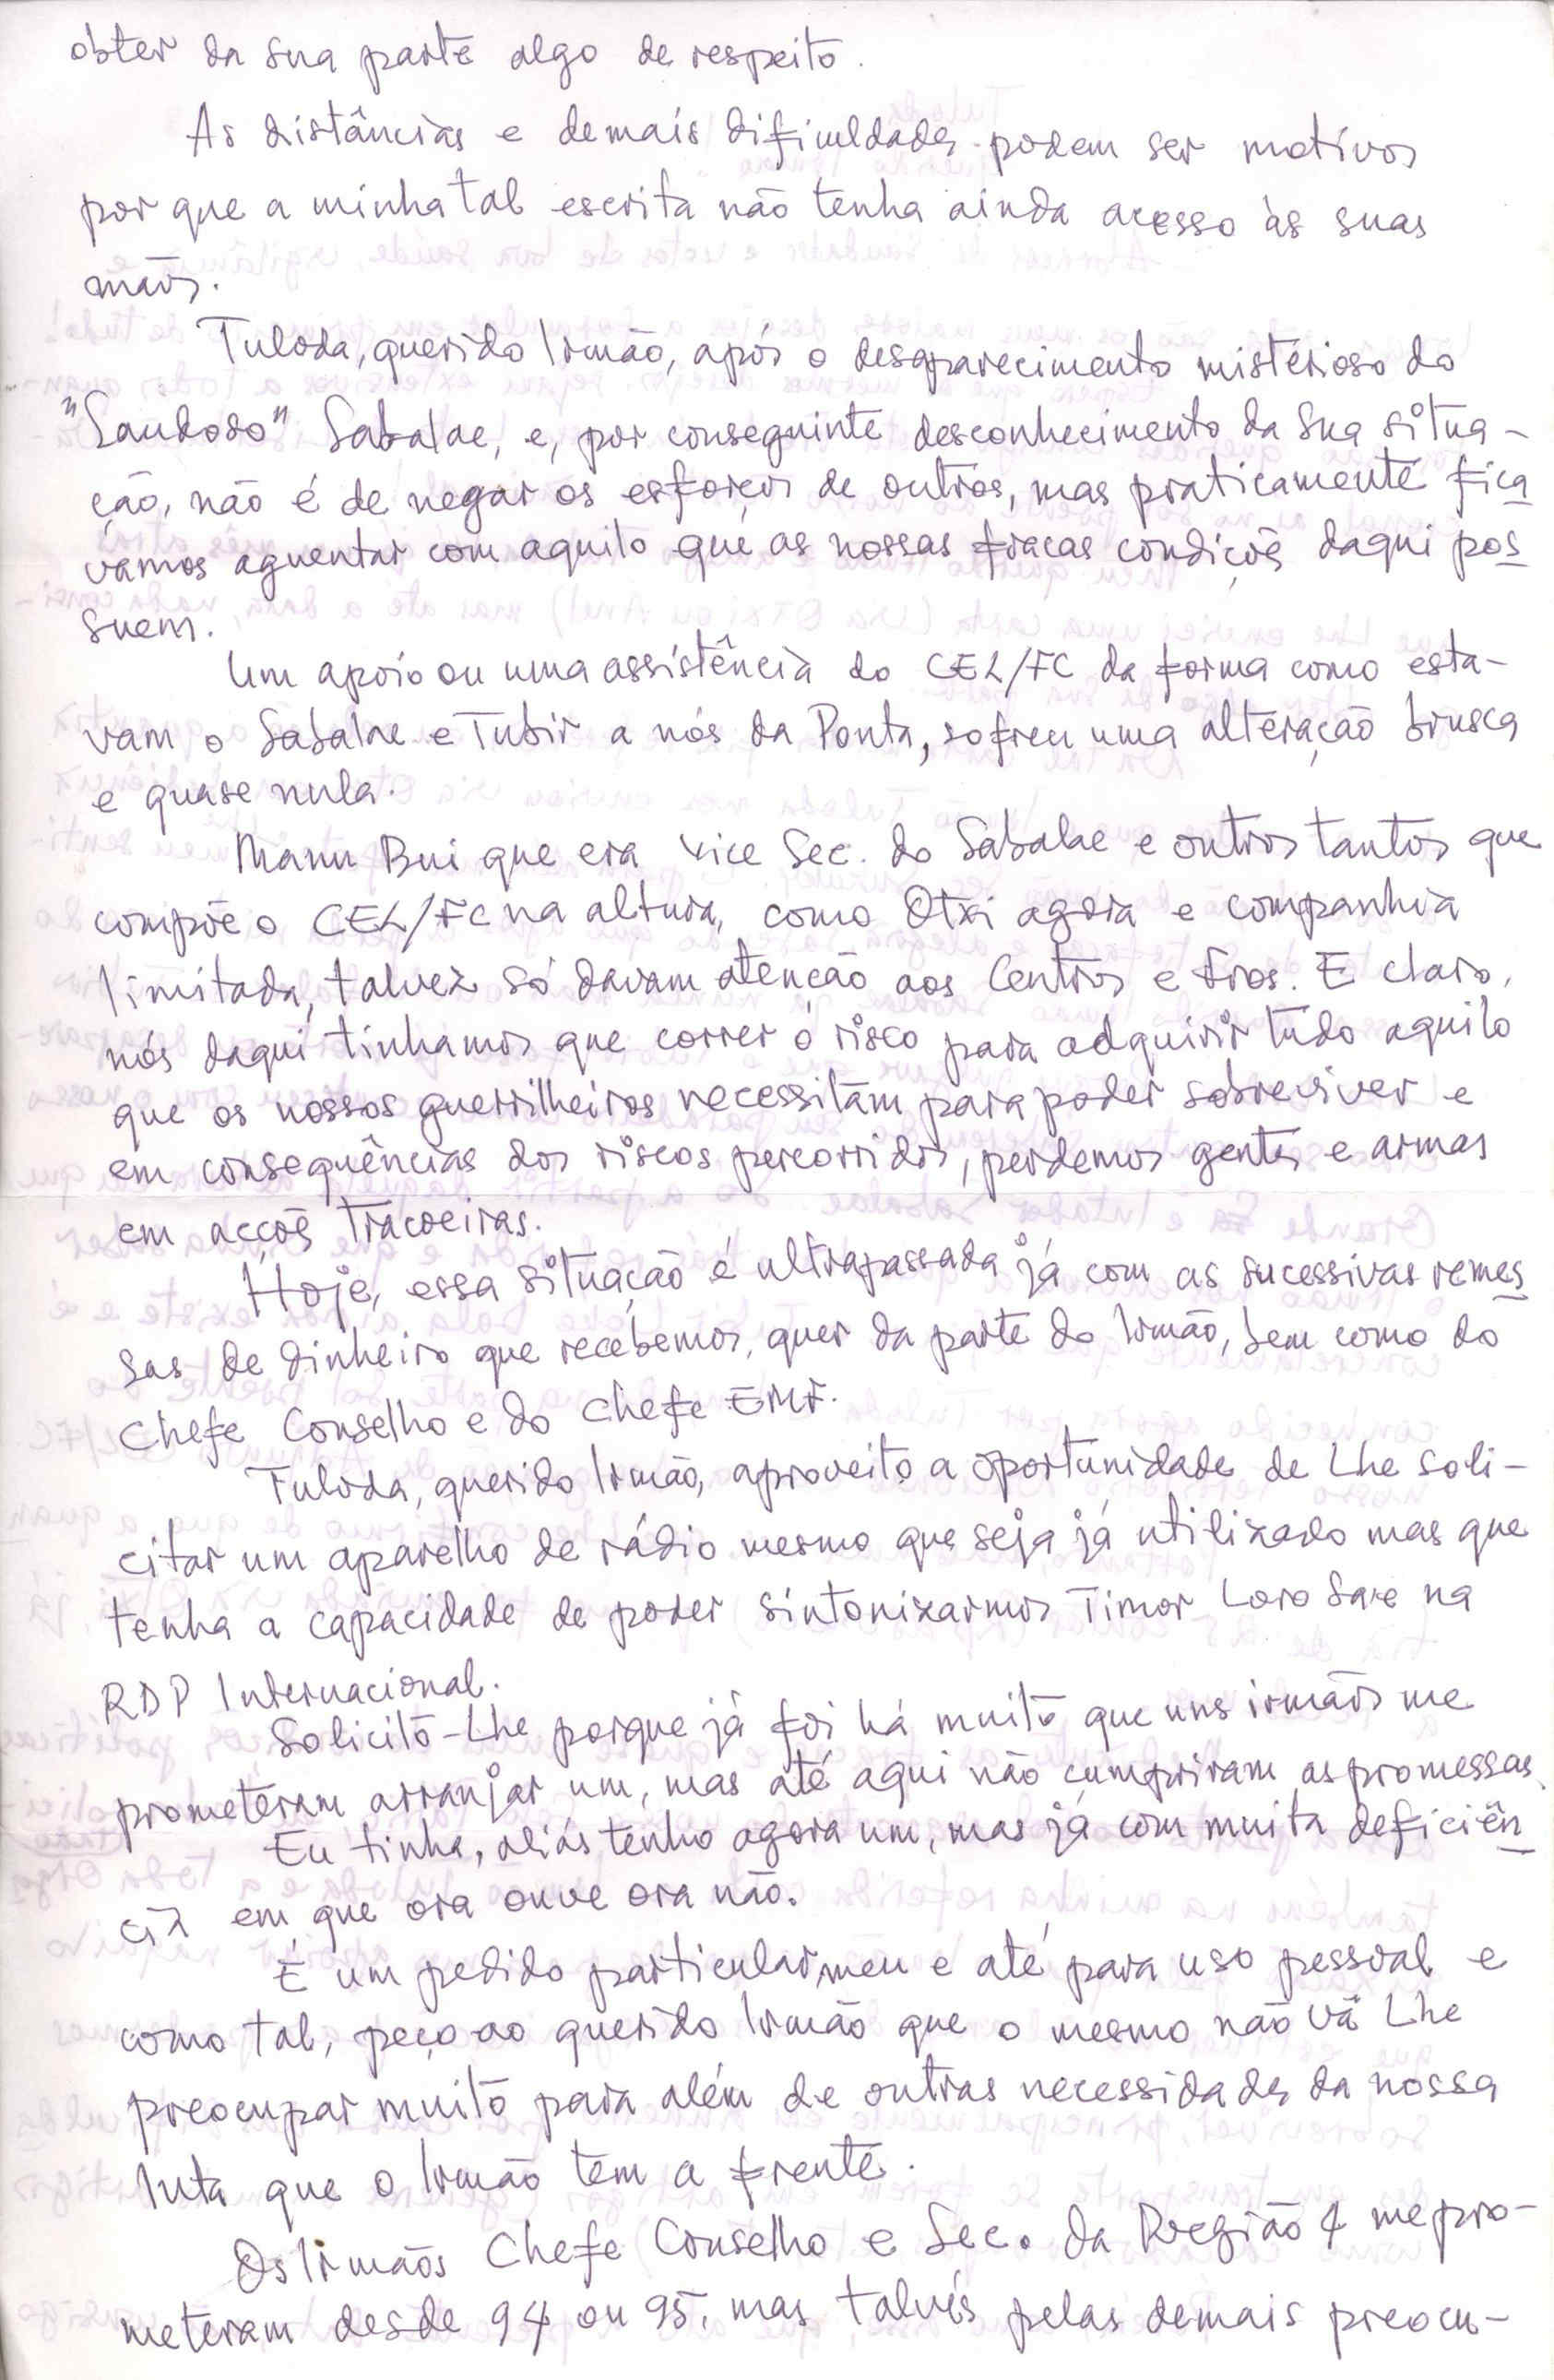 obter da sua parte algo de respeito.
As distâncias e demais dificuldades podem ser motivos
por que a minha tal escrita não tenha ainda acesso às suas
mãos.
Tuloda, querido Irmão, após o desaparecimento mistérioso do
"Saudoso" Sabalae, e, por conseguinte desconhecimento da sua situa-
ção, não é de negar os esforços de outros, mas praticamente fica
vamos aguentar com aquilo que as nossas fracas condições daqui pos
suem.
Um apoio ou uma assistência do CEL/FC da forma como esta-
vam o Sabalae e Tubir a nós da Ponta, sofreu uma alteração brusca
e quase nula.
Manu Bui que era Vice Sec. do Sabalae e outros tantos que
compõe o CEL/FC na altura, como Otxi agora e companhia
limitada, talvez só davam atenção aos Centros e Fros. E claro,
nós daqui tinhamos que correr o risco para adquirir tudo aquilo
que os nossos guerrilheiros necessitam para poder sobreviver e
em consequências dos riscos percorridos, perdemos gentes e armas
em acções tracoeiras.
Hoje, essa situação é ultrapassada já com as sucessivas remes
sas de dinheiro que recebemos, quer da parte do Irmão, bem como do
Chefe Conselho e do Chefe EMF.
Tuloda, querido Irmão, aproveito a oportunidade de Lhe soli-
citar um aparelho de rádio mesmo que seja já utilizado mas que
tenha a capacidade de poder sintonizarmos Timor Loro Sae na
RDP Internacional.
Solicito-Lhe porque já foi há muito que uns irmãos me
prometeram arranjar um, mas até aqui não cumpriram as promessas.
Eu tinha, aliás tenho agora um, mas já com muita deficiên
cia em que ora ouve ora não.
É um pedido particular meu e até para uso pessoal e
como tal, peço ao querido Irmão que o mesmo não vá Lhe
preocupar muito para além de outras necessidades da nossa
luta que o Irmão tem a frente.
Os Irmãos Chefe Conselho e Sec. da Região 4 me pro-
meteram desde 94 ou 95, mas talvés pelas demais preocu-